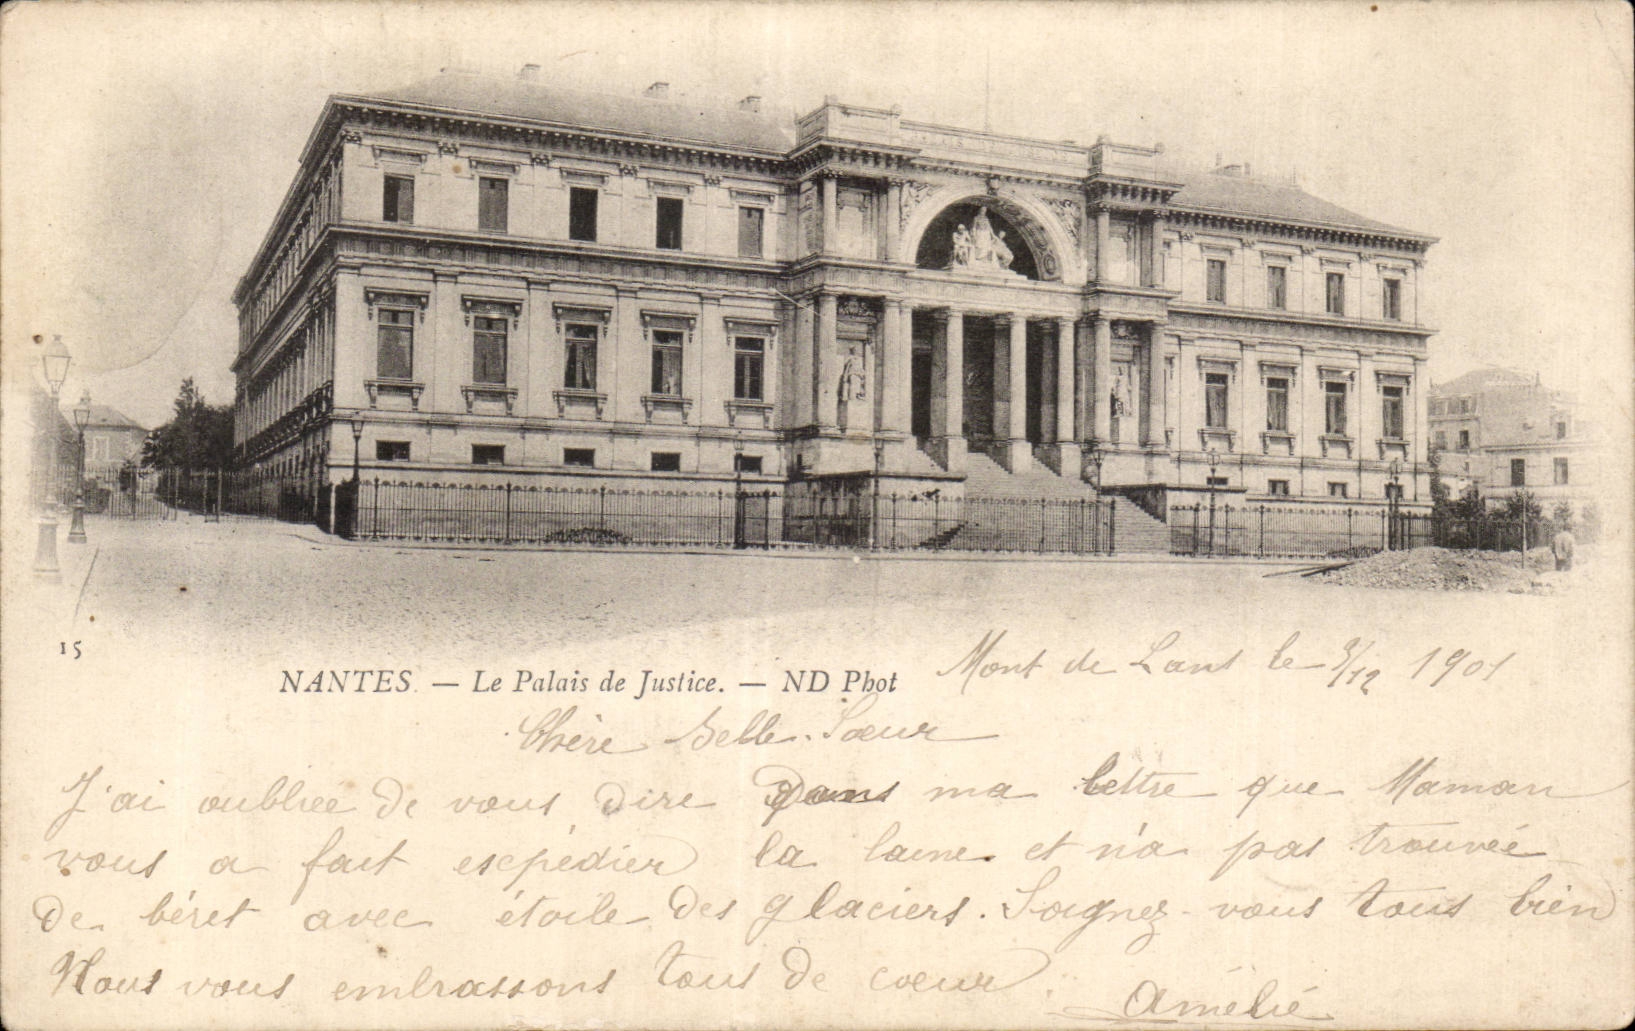 PALAIS DE JUSTICE
15
NANTES. — Le Palais de Justice. — ND Phot
Mont de Lans le 9/12 1901
Chère Belle-Sœur
J'ai oubliée de vous dire dans ma lettre que Maman
vous a fait escpédier la laine et n'a pas trouvée
de béret avec étoile des glaciers. Soignez-vous tous bien
Nous vous embrassons tous de cœur.
Amélie